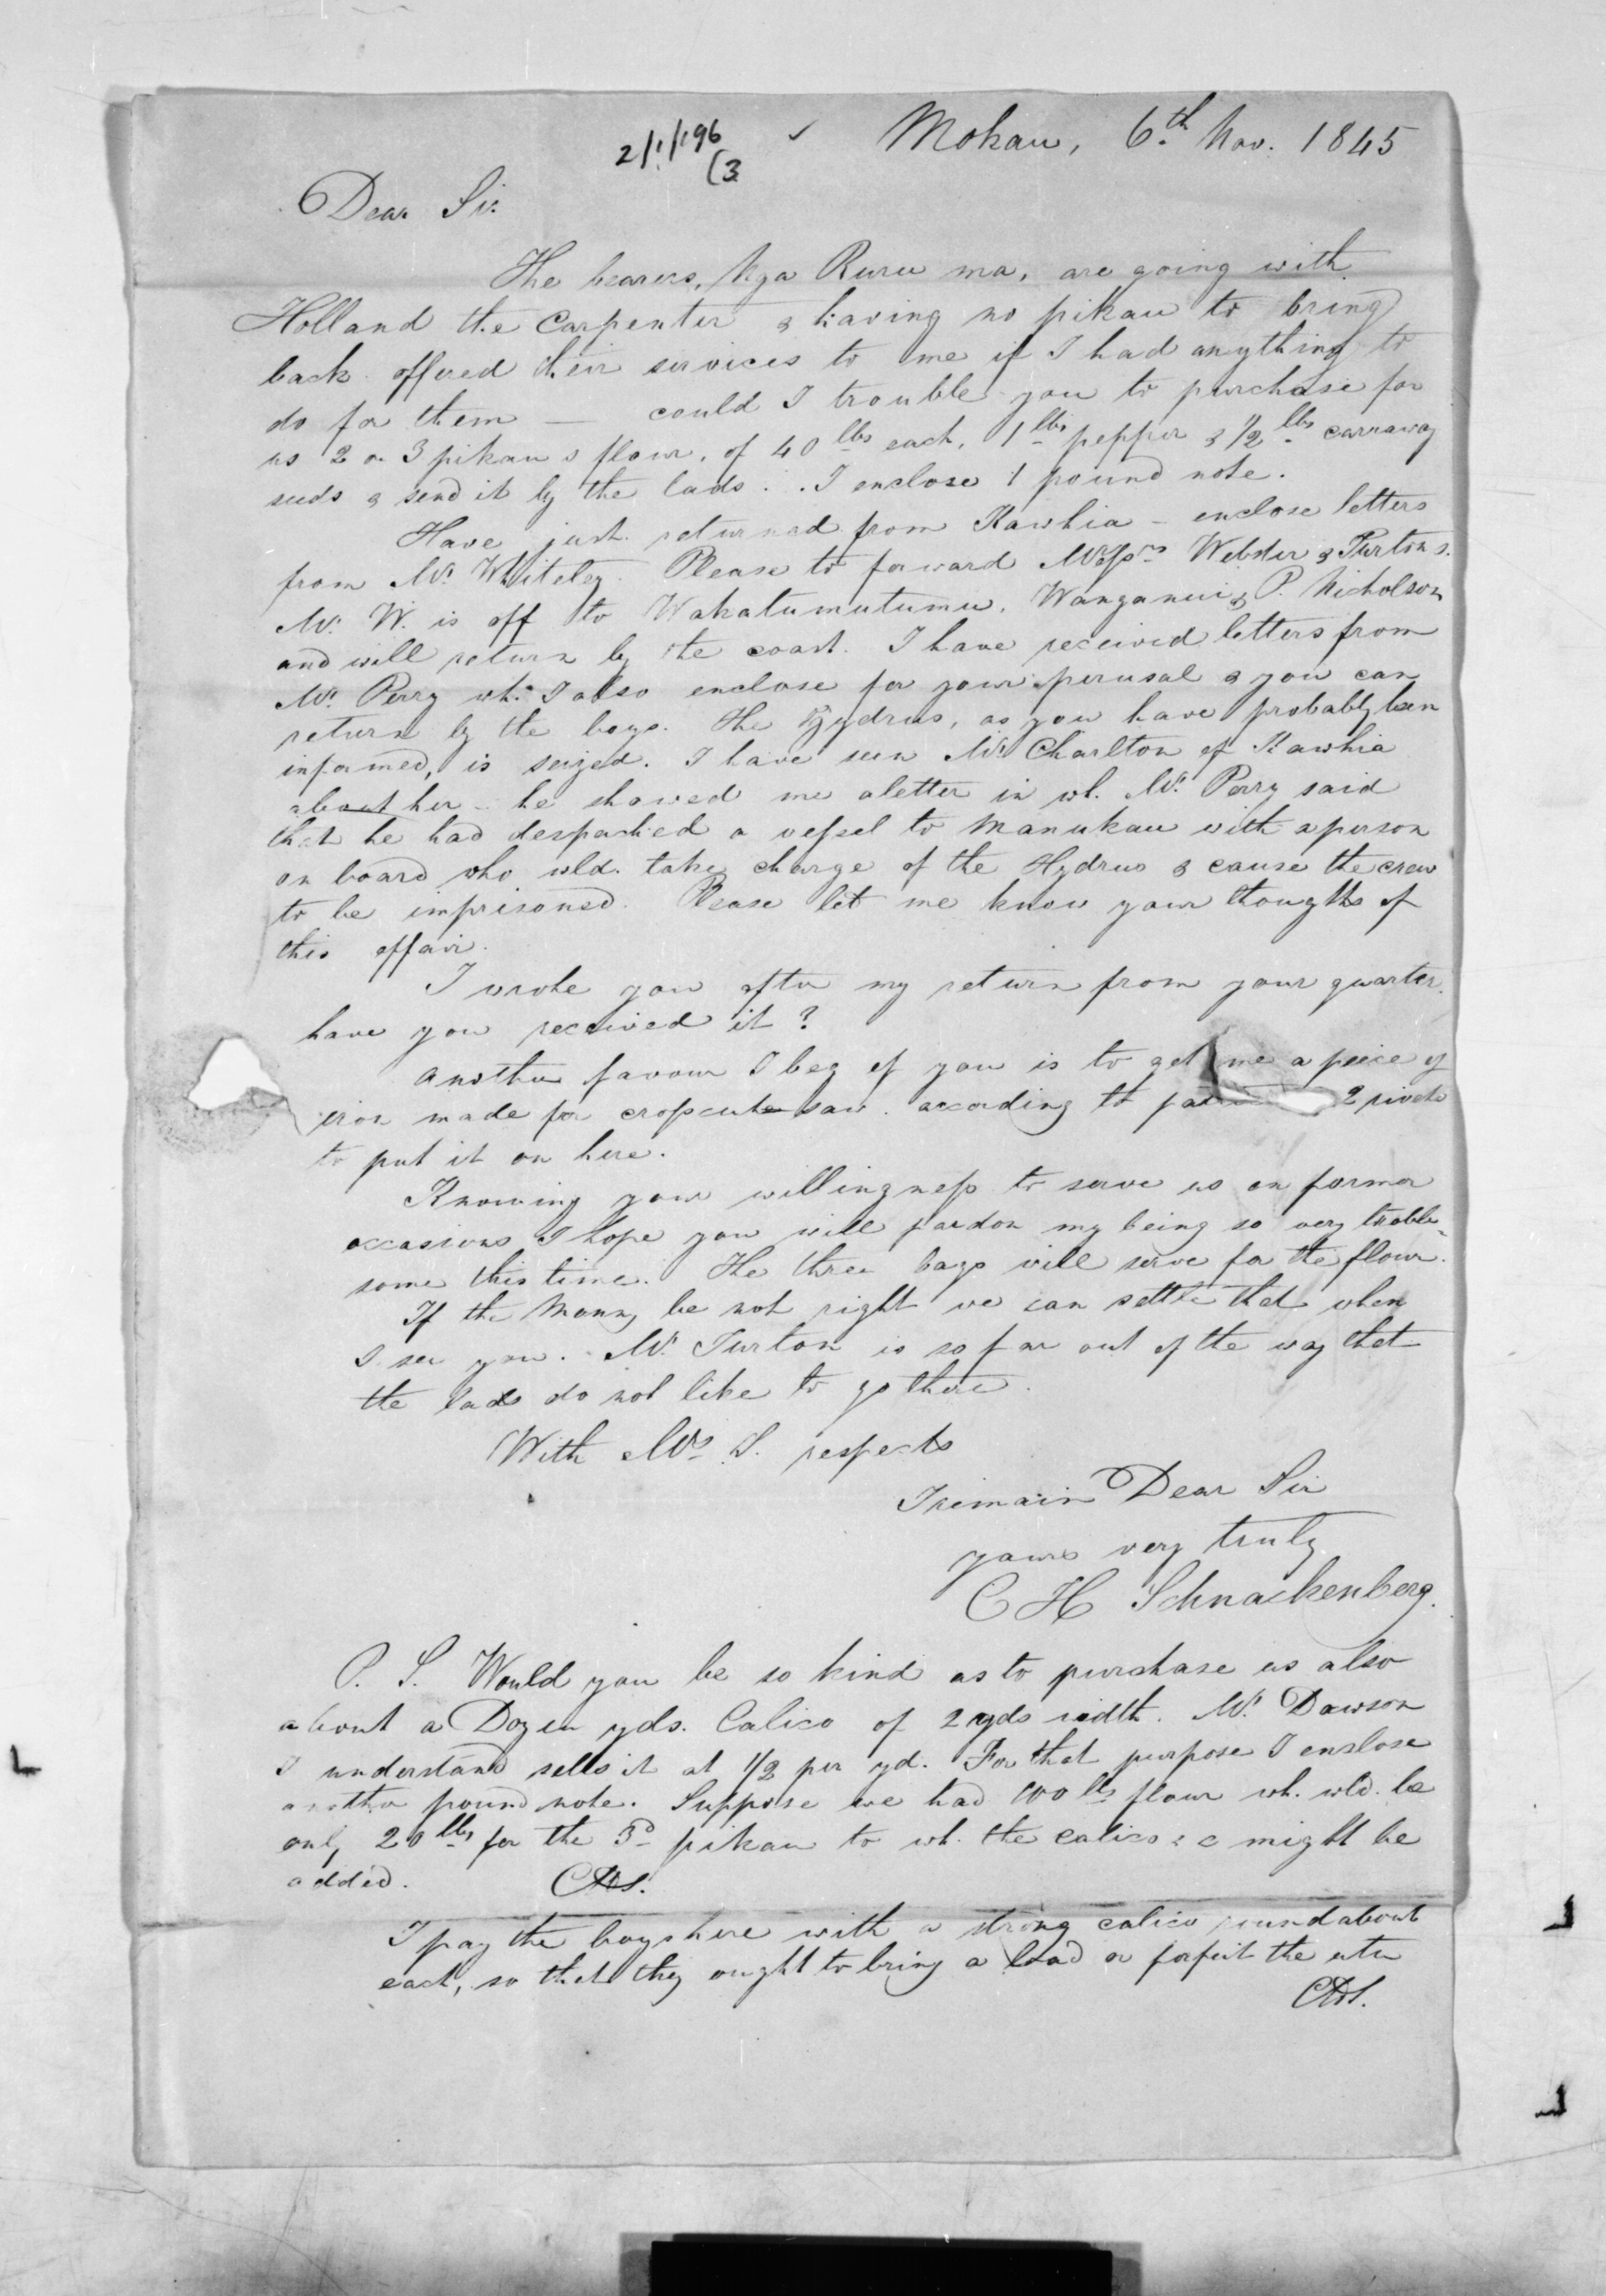 2/1/196
(3
Mokau, 6th Nov. 1845
Dear Sir
The bearers, Nga Ruru ma, are going with
Holland the Carpenter & having no pikau to bring
back offered their services to me if I had anything to
do for them — could I trouble you to purchase for
us 2 or 3 pikaus flour, of 40 lbs each, 1 lbs pepper & 1/2 lbs carraway
seeds & send it by the lads. I enclose 1 pound note.
Have just returned from Kawhia - enclose letters
from Mr. Whiteley. Please to forward Messrs Webster & Turtons.
Mr. W. is off to Wakatumutumu, Wanganui & P. Nicholson
and will return by the coast. I have received letters from
Mr. Perry wh. I also enclose for your perusal & you can
return by the boys. The Hydrus, as you have probably been
informed, is seized. I have seen Mr. Charlton of Kawhia
about her - he showed me a letter in wh. Mr. Perry said
that he had despatched a vessel to Manukau with a person
on board who wld. take charge of the Hydrus & cause the crew
to be imprisoned. Please let me know your thougths of
this affair.
I wrote you after my return from your quarter.
have you received it?
Another favour I beg of you is to get me a peice of
iron made for crosscut saw. according to 2 rivets
to put it on here.
Knowing your willingness to serve us on former
occasions I hope you will pardon my being so very trouble-
some this time. The three bags will serve for the flour.
If the Money be not right we can settle that when
I see you. Mr. Turton is so far out of the way that
the lads do not like to go there.
With Mrs S. respects
I remain Dear Sir
yours very truly
C H Schnackenberg.
P. S. Would you be so kind as to purchase us also
about a Dozen yds. Calico of 2 yds width. Mr. Dawson
I understand sells it at 1/2 per yd. For that purpose I enclose
another pound note. Suppose we had 100 lbs flour wh. wld. be
only 20 lbs for the 3d pikau to wh. the calico &c might be
added. CHS.
I pay the boys here with a strong calico roundabout
each, so that they ought to bring a load or forfeit the utu
CHS.